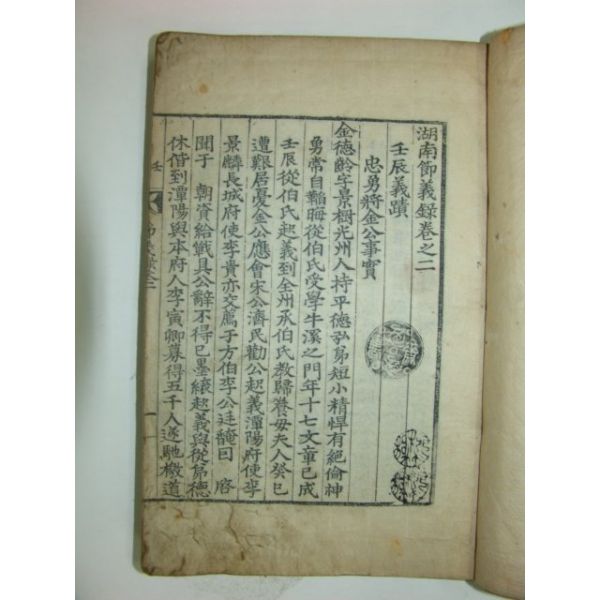 湖南節義錄卷之二
壬辰義蹟
忠勇將金公事實
金德齡字景樹光州人持平德弘弟短小精悍有絶倫神
勇常自韜晦從伯氏受學牛溪之門年十七文章已成
壬辰從伯氏起義到全州承伯氏敎歸養母夫人癸巳
遭艱居憂金公應會宋公濟民勸公起義潭陽府使李
景麟長城府使李貴亦交薦于方伯李公廷馣曰 啓
聞于 朝資給戰具公辭不得已墨縗起義與從弟德
休偕到潭陽與本府人李寅卿募得五千人遂馳檄道
壬